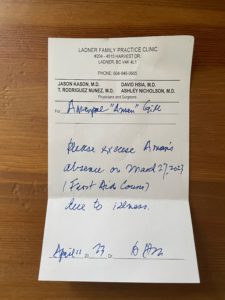 LADNER FAMILY PRACTICE CLINIC
#204 - 4515 HARVEST DR.
LADNER, BC V4K 4L1
PHONE: 604-946-
JASON KASON, M.D. DAVID HSIA, M.D.
T. RODRIGUEZ NUNEZ, M.D. ASHLEY NICHOLSON, M.D.
Physicians and Surgeons
To "Aman" Gill
Please excuse Aman's
absence on March 27, 2023
(First Aid Course)
due to illness.
April 11 20 23